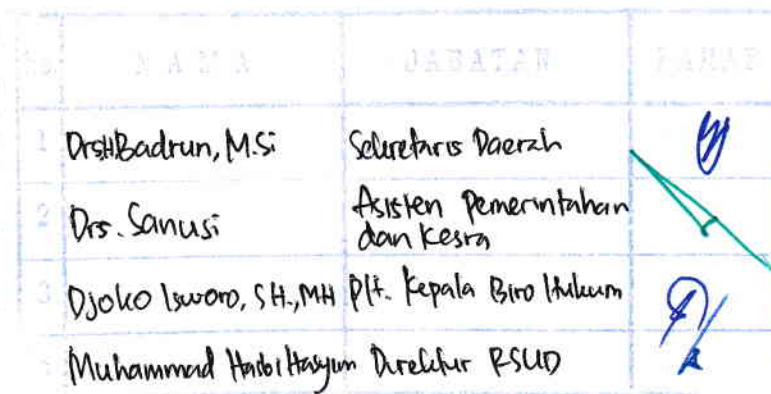 No. NAMA JABATAN PARAF
1 Drs.H.Badrun, M.Si Sekretaris Daerah
2 Drs. Sanusi Asisten Pemerintahan
dan Kesra
3 Djoko Isworo, SH.,MH Plt. Kepala Biro Hukum
Muhammad Direktur RSUD